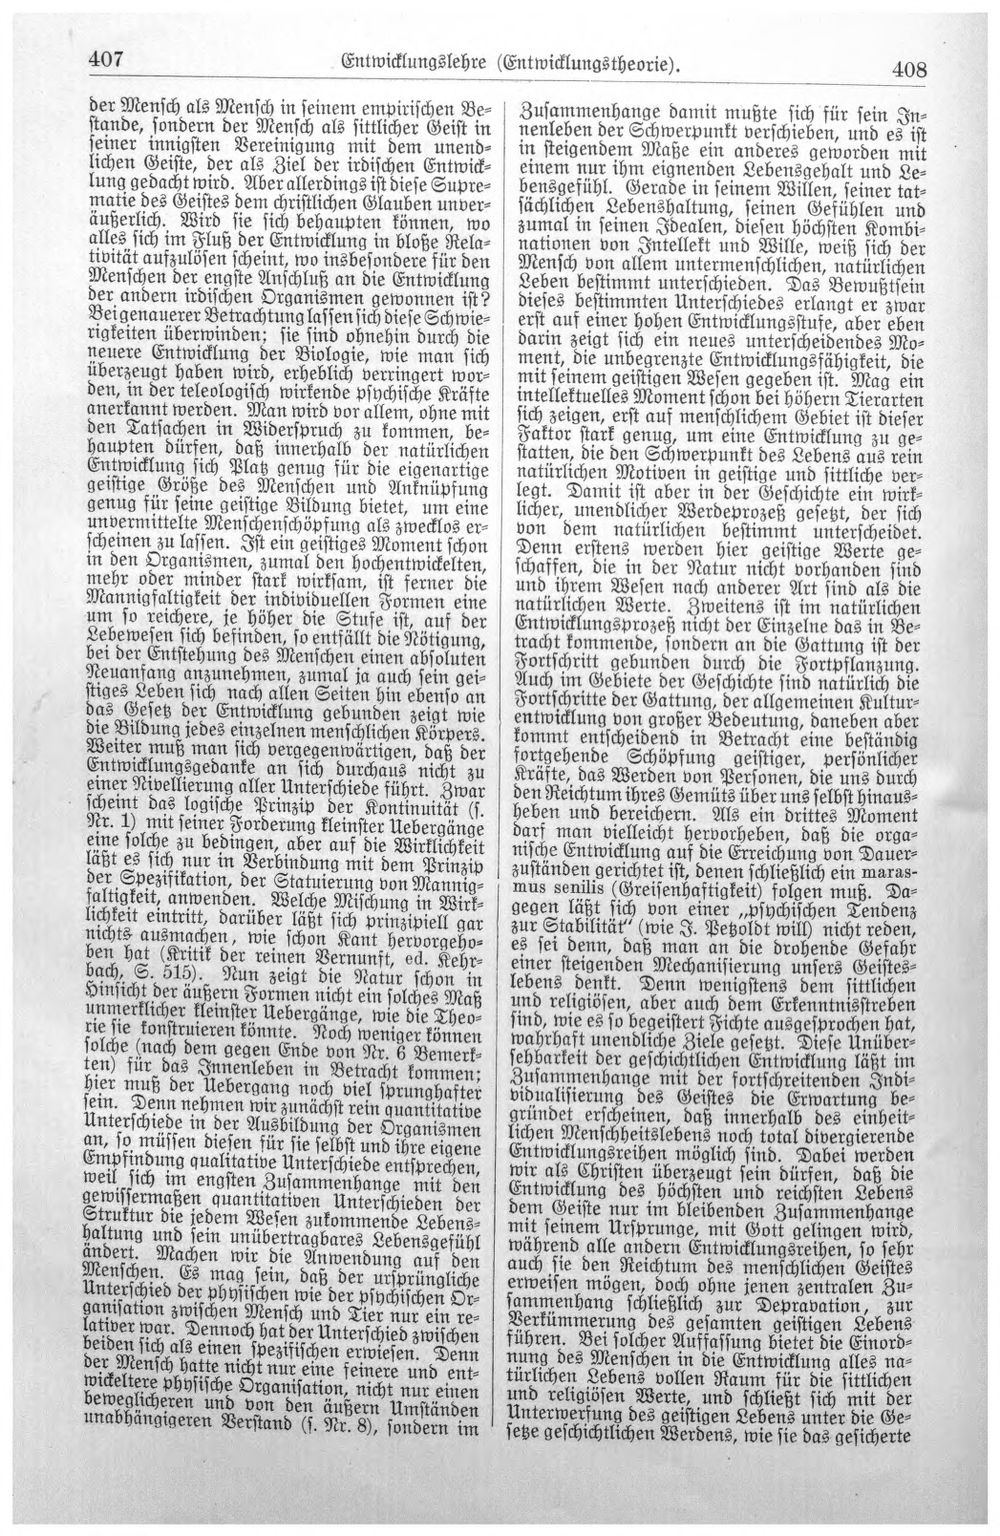 407
Entwicklungslehre (Entwicklungstheorie).
408
der Mensch als Mensch in seinem empirischen Be-
stande, sondern der Mensch als sittlicher Geist in
seiner innigsten Vereinigung mit dem unend-
lichen Geiste, der als Ziel der irdischen Entwick-
lung gedacht wird. Aber allerdings ist diese Supre-
matie des Geistes dem christlichen Glauben unver-
äußerlich. Wird sie sich behaupten können, wo
alles sich im Fluß der Entwicklung in bloße Rela-
tivität aufzulösen scheint, wo insbesondere für den
Menschen der engste Anschluß an die Entwicklung
der andern irdischen Organismen gewonnen ist?
Bei genauerer Betrachtung lassen sich diese Schwie-
rigkeiten überwinden; sie sind ohnehin durch die
neuere Entwicklung der Biologie, wie man sich
überzeugt haben wird, erheblich verringert wor-
den, in der teleologisch wirkende psychische Kräfte
anerkannt werden. Man wird vor allem, ohne mit
den Tatsachen in Widerspruch zu kommen, be-
haupten dürfen, daß innerhalb der natürlichen
Entwicklung sich Platz genug für die eigenartige
geistige Größe des Menschen und Anknüpfung
genug für seine geistige Bildung bietet, um eine
unvermittelte Menschenschöpfung als zwecklos er-
scheinen zu lassen. Ist ein geistiges Moment schon
in den Organismen, zumal den hochentwickelten,
mehr oder minder stark wirksam, ist ferner die
Mannigfaltigkeit der individuellen Formen eine
um so reichere, je höher die Stufe ist, auf der
Lebewesen sich befinden, so entfällt die Nötigung,
bei der Entstehung des Menschen einen absoluten
Neuanfang anzunehmen, zumal ja auch sein gei-
stiges Leben sich nach allen Seiten hin ebenso an
das Gesetz der Entwicklung gebunden zeigt wie
die Bildung jedes einzelnen menschlichen Körpers.
Weiter muß man sich vergegenwärtigen, daß der
Entwicklungsgedanke an sich durchaus nicht zu
einer Nivellierung aller Unterschiede führt. Zwar
scheint das logische Prinzip der Kontinuität (s.
Nr. 1) mit seiner Forderung kleinster Uebergänge
eine solche zu bedingen, aber auf die Wirklichkeit
läßt es sich nur in Verbindung mit dem Prinzip
der Spezifikation, der Statuierung von Mannig-
faltigkeit, anwenden. Welche Mischung in Wirk-
lichkeit eintritt, darüber läßt sich prinzipiell gar
nichts ausmachen, wie schon Kant hervorgeho-
ben hat (Kritik der reinen Vernunft, ed. Kehr-
bach, S. 515). Nun zeigt die Natur schon in
Hinsicht der äußern Formen nicht ein solches Maß
unmerklicher kleinster Uebergänge, wie die Theo-
rie sie konstruieren könnte. Noch weniger können
solche (nach dem gegen Ende von Nr. 6 Bemerk-
ten) für das Innenleben in Betracht kommen;
hier muß der Uebergang noch viel sprunghafter
sein. Denn nehmen wir zunächst rein quantitative
Unterschiede in der Ausbildung der Organismen
an, so müssen diesen für sie selbst und ihre eigene
Empfindung qualitative Unterschiede entsprechen,
weil sich im engsten Zusammenhange mit den
gewissermaßen quantitativen Unterschieden der
Struktur die jedem Wesen zukommende Lebens-
haltung und sein unübertragbares Lebensgefühl
ändert. Machen wir die Anwendung auf den
Menschen. Es mag sein, daß der ursprüngliche
Unterschied der physischen wie der psychischen Or-
ganisation zwischen Mensch und Tier nur ein re-
lativer war. Dennoch hat der Unterschied zwischen
beiden sich als einen spezifischen erwiesen. Denn
der Mensch hatte nicht nur eine feinere und ent-
wickeltere physische Organisation, nicht nur einen
beweglicheren und von den äußern Umständen
unabhängigeren Verstand (s. Nr. 8), sondern im
Zusammenhange damit mußte sich für sein In-
nenleben der Schwerpunkt verschieben, und es ist
in steigendem Maße ein anderes geworden mit
einem nur ihm eignenden Lebensgehalt und Le-
bensgefühl. Gerade in seinem Willen, seiner tat-
sächlichen Lebenshaltung, seinen Gefühlen und
zumal in seinen Idealen, diesen höchsten Kombi-
nationen von Intellekt und Wille, weiß sich der
Mensch von allem untermenschlichen, natürlichen
Leben bestimmt unterschieden. Das Bewußtsein
dieses bestimmten Unterschiedes erlangt er zwar
erst auf einer hohen Entwicklungsstufe, aber eben
darin zeigt sich ein neues unterscheidendes Mo-
ment, die unbegrenzte Entwicklungsfähigkeit, die
mit seinem geistigen Wesen gegeben ist. Mag ein
intellektuelles Moment schon bei höhern Tierarten
sich zeigen, erst auf menschlichem Gebiet ist dieser
Faktor stark genug, um eine Entwicklung zu ge-
statten, die den Schwerpunkt des Lebens aus rein
natürlichen Motiven in geistige und sittliche ver-
legt. Damit ist aber in der Geschichte ein wirk-
licher, unendlicher Werdeprozeß gesetzt, der sich
von dem natürlichen bestimmt unterscheidet.
Denn erstens werden hier geistige Werte ge-
schaffen, die in der Natur nicht vorhanden sind
und ihrem Wesen nach anderer Art sind als die
natürlichen Werte. Zweitens ist im natürlichen
Entwicklungsprozeß nicht der Einzelne das in Be-
tracht kommende, sondern an die Gattung ist der
Fortschritt gebunden durch die Fortpflanzung.
Auch im Gebiete der Geschichte sind natürlich die
Fortschritte der Gattung, der allgemeinen Kultur-
entwicklung von großer Bedeutung, daneben aber
kommt entscheidend in Betracht eine beständig
fortgehende Schöpfung geistiger, persönlicher
Kräfte, das Werden von Personen, die uns durch
den Reichtum ihres Gemüts über uns selbst hinaus-
heben und bereichern. Als ein drittes Moment
darf man vielleicht hervorheben, daß die orga-
nische Entwicklung auf die Erreichung von Dauer-
zuständen gerichtet ist, denen schließlich ein maras-
mus senilis (Greisenhaftigkeit) folgen muß. Da-
gegen läßt sich von einer „psychischen Tendenz
zur Stabilität“ (wie J. Petzoldt will) nicht reden,
es sei denn, daß man an die drohende Gefahr
einer steigenden Mechanisierung unsers Geistes-
lebens denkt. Denn wenigstens dem sittlichen
und religiösen, aber auch dem Erkenntnisstreben
sind, wie es so begeistert Fichte ausgesprochen hat,
wahrhaft unendliche Ziele gesetzt. Diese Unüber-
sehbarkeit der geschichtlichen Entwicklung läßt im
Zusammenhange mit der fortschreitenden Indi-
vidualisierung des Geistes die Erwartung be-
gründet erscheinen, daß innerhalb des einheit-
lichen Menschheitslebens noch total divergierende
Entwicklungsreihen möglich sind. Dabei werden
wir als Christen überzeugt sein dürfen, daß die
Entwicklung des höchsten und reichsten Lebens
dem Geiste nur im bleibenden Zusammenhange
mit seinem Ursprunge, mit Gott gelingen wird,
während alle andern Entwicklungsreihen, so sehr
auch sie den Reichtum des menschlichen Geistes
erweisen mögen, doch ohne jenen zentralen Zu-
sammenhang schließlich zur Depravation, zur
Verkümmerung des gesamten geistigen Lebens
führen. Bei solcher Auffassung bietet die Einord-
nung des Menschen in die Entwicklung alles na-
türlichen Lebens vollen Raum für die sittlichen
und religiösen Werte, und schließt sich mit der
Unterwerfung des geistigen Lebens unter die Ge-
setze geschichtlichen Werdens, wie sie das gesicherte